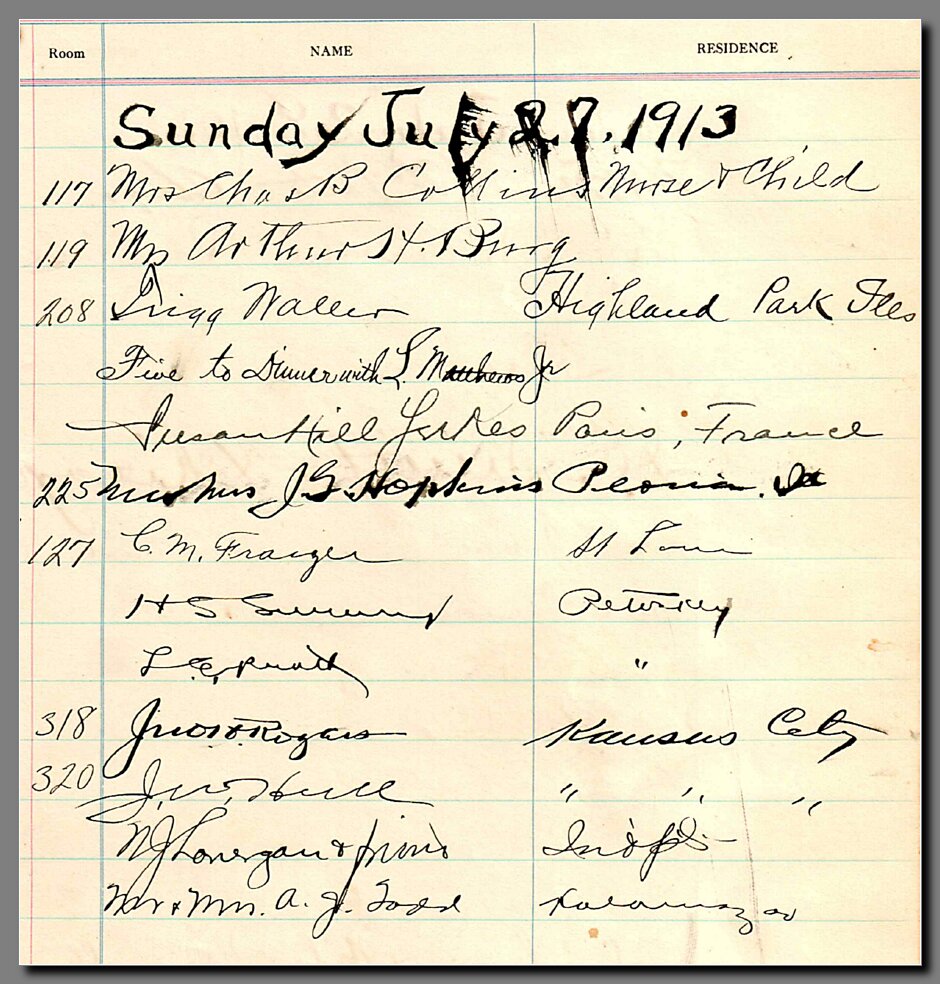 Room NAME RESIDENCE
Sunday July 27, 1913
117 Mrs Chas B Collins Nurse & Child
119 Mr Arthur H. Burg
208 Trigg Waller Highland Park Ills
Five to Dinner with L. Matthews Jr
Susan Hill Yerkes Paris, France
225 Mr & Mrs J G Hopkins Peoria.
127 C. M. Frazer St Louis
H S Petoskey
L "
318 Rogers Kansas City
320 J. W. Hull " " "
N J Lonergan & friend Indpls
Mr & Mrs. A. J. Todd Kalamazoo